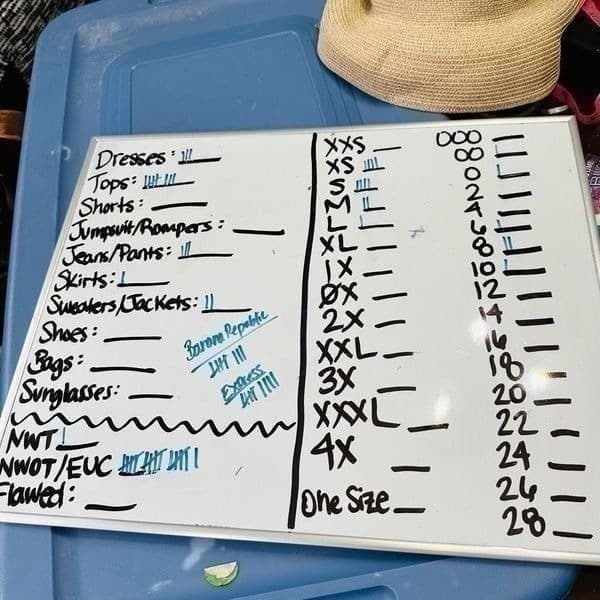 Dresses:
Tops:
Shorts:
Jumpsuit/Rompers:
Jeans/Pants:
Skirts:
Sweaters/Jackets:
Shoes:
Bags:
Sunglasses:
Banana Republic
Express
NWT
NWOT/EUC
Flawed:
XXS
XS
S
M
L
XL
1X
0X
2X
XXL
3X
XXXL
4X
One Size
000
00
0
2
4
6
8
10
12
14
16
18
20
22
24
26
28